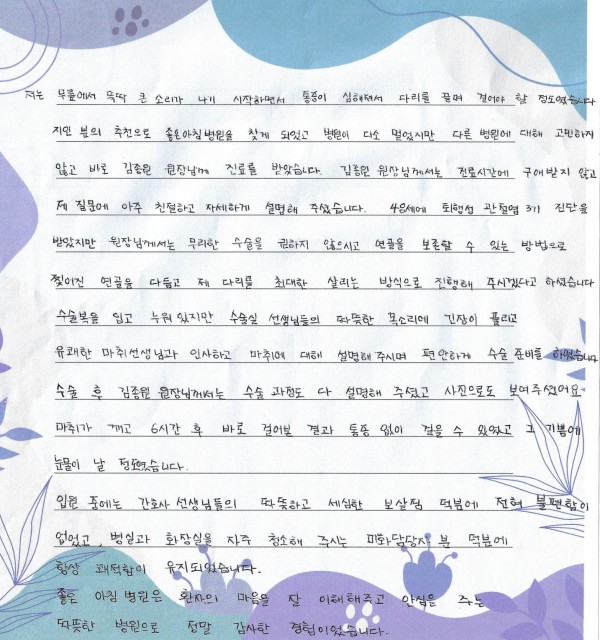 저는 무릎에서 뚝딱 큰 소리가 나기 시작하면서 통증이 심해져서 다리를 끌며 걸어야 할 정도였습니다
지인 분의 추천으로 좋은아침병원을 찾게 되었고 병원이 다소 멀었지만 다른 병원에 대해 고민하지
않고 바로 김종원 원장님께 진료를 받았습니다. 김종원 원장님께서는 진료시간에 구애받지 않고
제 질문에 아주 친절하고 자세하게 설명해 주셨습니다. 48세에 퇴행성 관절염 3기 진단을
받았지만 원장님께서는 무리한 수술을 권하지 않으시고 연골을 보존할 수 있는 방법으로
찢어진 연골을 다듬고 제 다리를 최대한 살리는 방식으로 진행해 주시겠다고 하셨습니다
수술복을 입고 누워있지만 수술실 선생님들의 따뜻한 목소리에 긴장이 풀리고
유쾌한 마취선생님과 인사하고 마취에 대해 설명해주시며 편안하게 수술 준비를 하였습니다
수술 후 김종원 원장님께서는 수술 과정도 다 설명해 주셨고 사진으로도 보여주셨어요
마취가 깨고 6시간 후 바로 걸어본 결과 통증 없이 걸을 수 있었고 그 기쁨에
눈물이 날 정도였습니다.
입원 중에는 간호사 선생님들의 따뜻하고 세심한 보살핌 덕분에 전혀 불편함이
없었고, 병실과 화장실을 자주 청소해 주시는 미화담당자 분 덕분에
항상 쾌적함이 유지되었습니다.
좋은 아침 병원은 환자의 마음을 잘 이해해주고 안심을 주는
따뜻한 병원으로 정말 감사한 경험이었습니다.